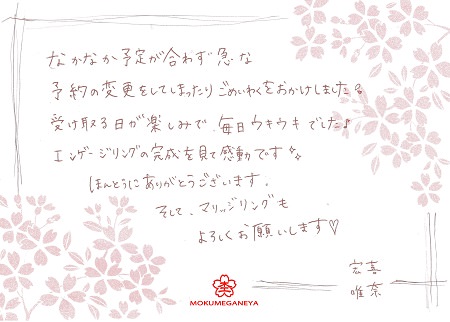 なかなか予定が合わず急な
予約の変更をしてしまったりごめいわくをおかけしました。
受け取る日が楽しみで、毎日ウキウキでした♪
エンゲージリングの完成を見て感動です✨
ほんとうにありがとうございます。
そして、マリッジリングも
よろしくお願いします♡
宏喜
唯奈
MOKUMEGANEYA